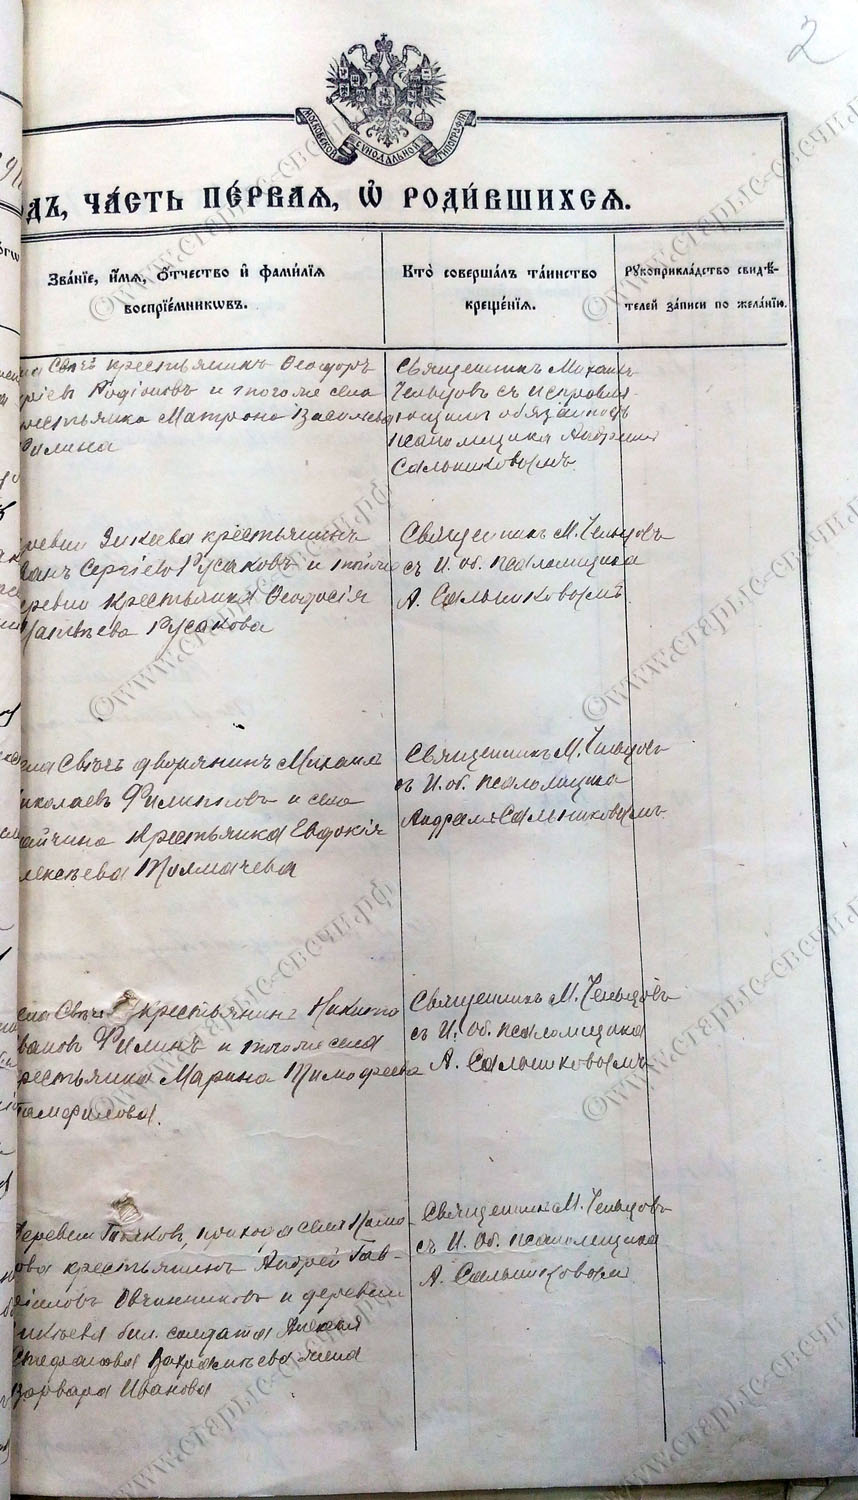 2
МОСКОВСКОЙ СѴНОДАЛЬНОЙ ТИПОГРАФІИ
дъ, ча́сть пе́рвая, ѽ роди́вшихся.
Зва́нїе, и҆́мя, ѻ҆́тчество и҆ фами́лїя
воспрїе́мникѡвъ.
Кто̀ соверша́лъ та́инство
креще́нїя.
Рꙋкоприкла́дство свидѣ́-
телей за́писи по жела́нїю.
крестьянинъ Ѳеодоръ
Родіоновъ и тогоже села
крестьянка Матрона Васильева
Филина
Священникъ Михаилъ
Чельцовъ съ исправля-
ющимъ обязанность
псаломщика Андреемъ
Сальниковымъ
Зикеева крестьянинъ
Сергіевъ Русаковъ и тойже
деревни крестьянка Ѳеодосія
Русакова
Священникъ М. Чельцовъ
съ И. об. псаломщика
А. Сальниковымъ
дворянинъ Михаилъ
Николаевъ Филипповъ и села
крестьянка Евдокія
Алексеева Толмачева
Священникъ М. Чельцовъ
съ И. об. псаломщика
Андреемъ Сальниковымъ
крестьянинъ Никита
Ивановъ Филинъ и тогоже села
крестьянка Марина Тимофеева
Памфилова.
Священникъ М. Чельцовъ
съ И. Об. псаломщика
А. Сальниковымъ
деревни прихода села
крестьянинъ Андрей Гав-
риловъ Овчинниковъ и деревни
Зикеева бил. солдата Алексея
Стефанова жена
Варвара Иванова
Священникъ М. Чельцовъ
съ И. Об. псаломщика
А. Сальниковымъ
©www.старые-свечи.рф